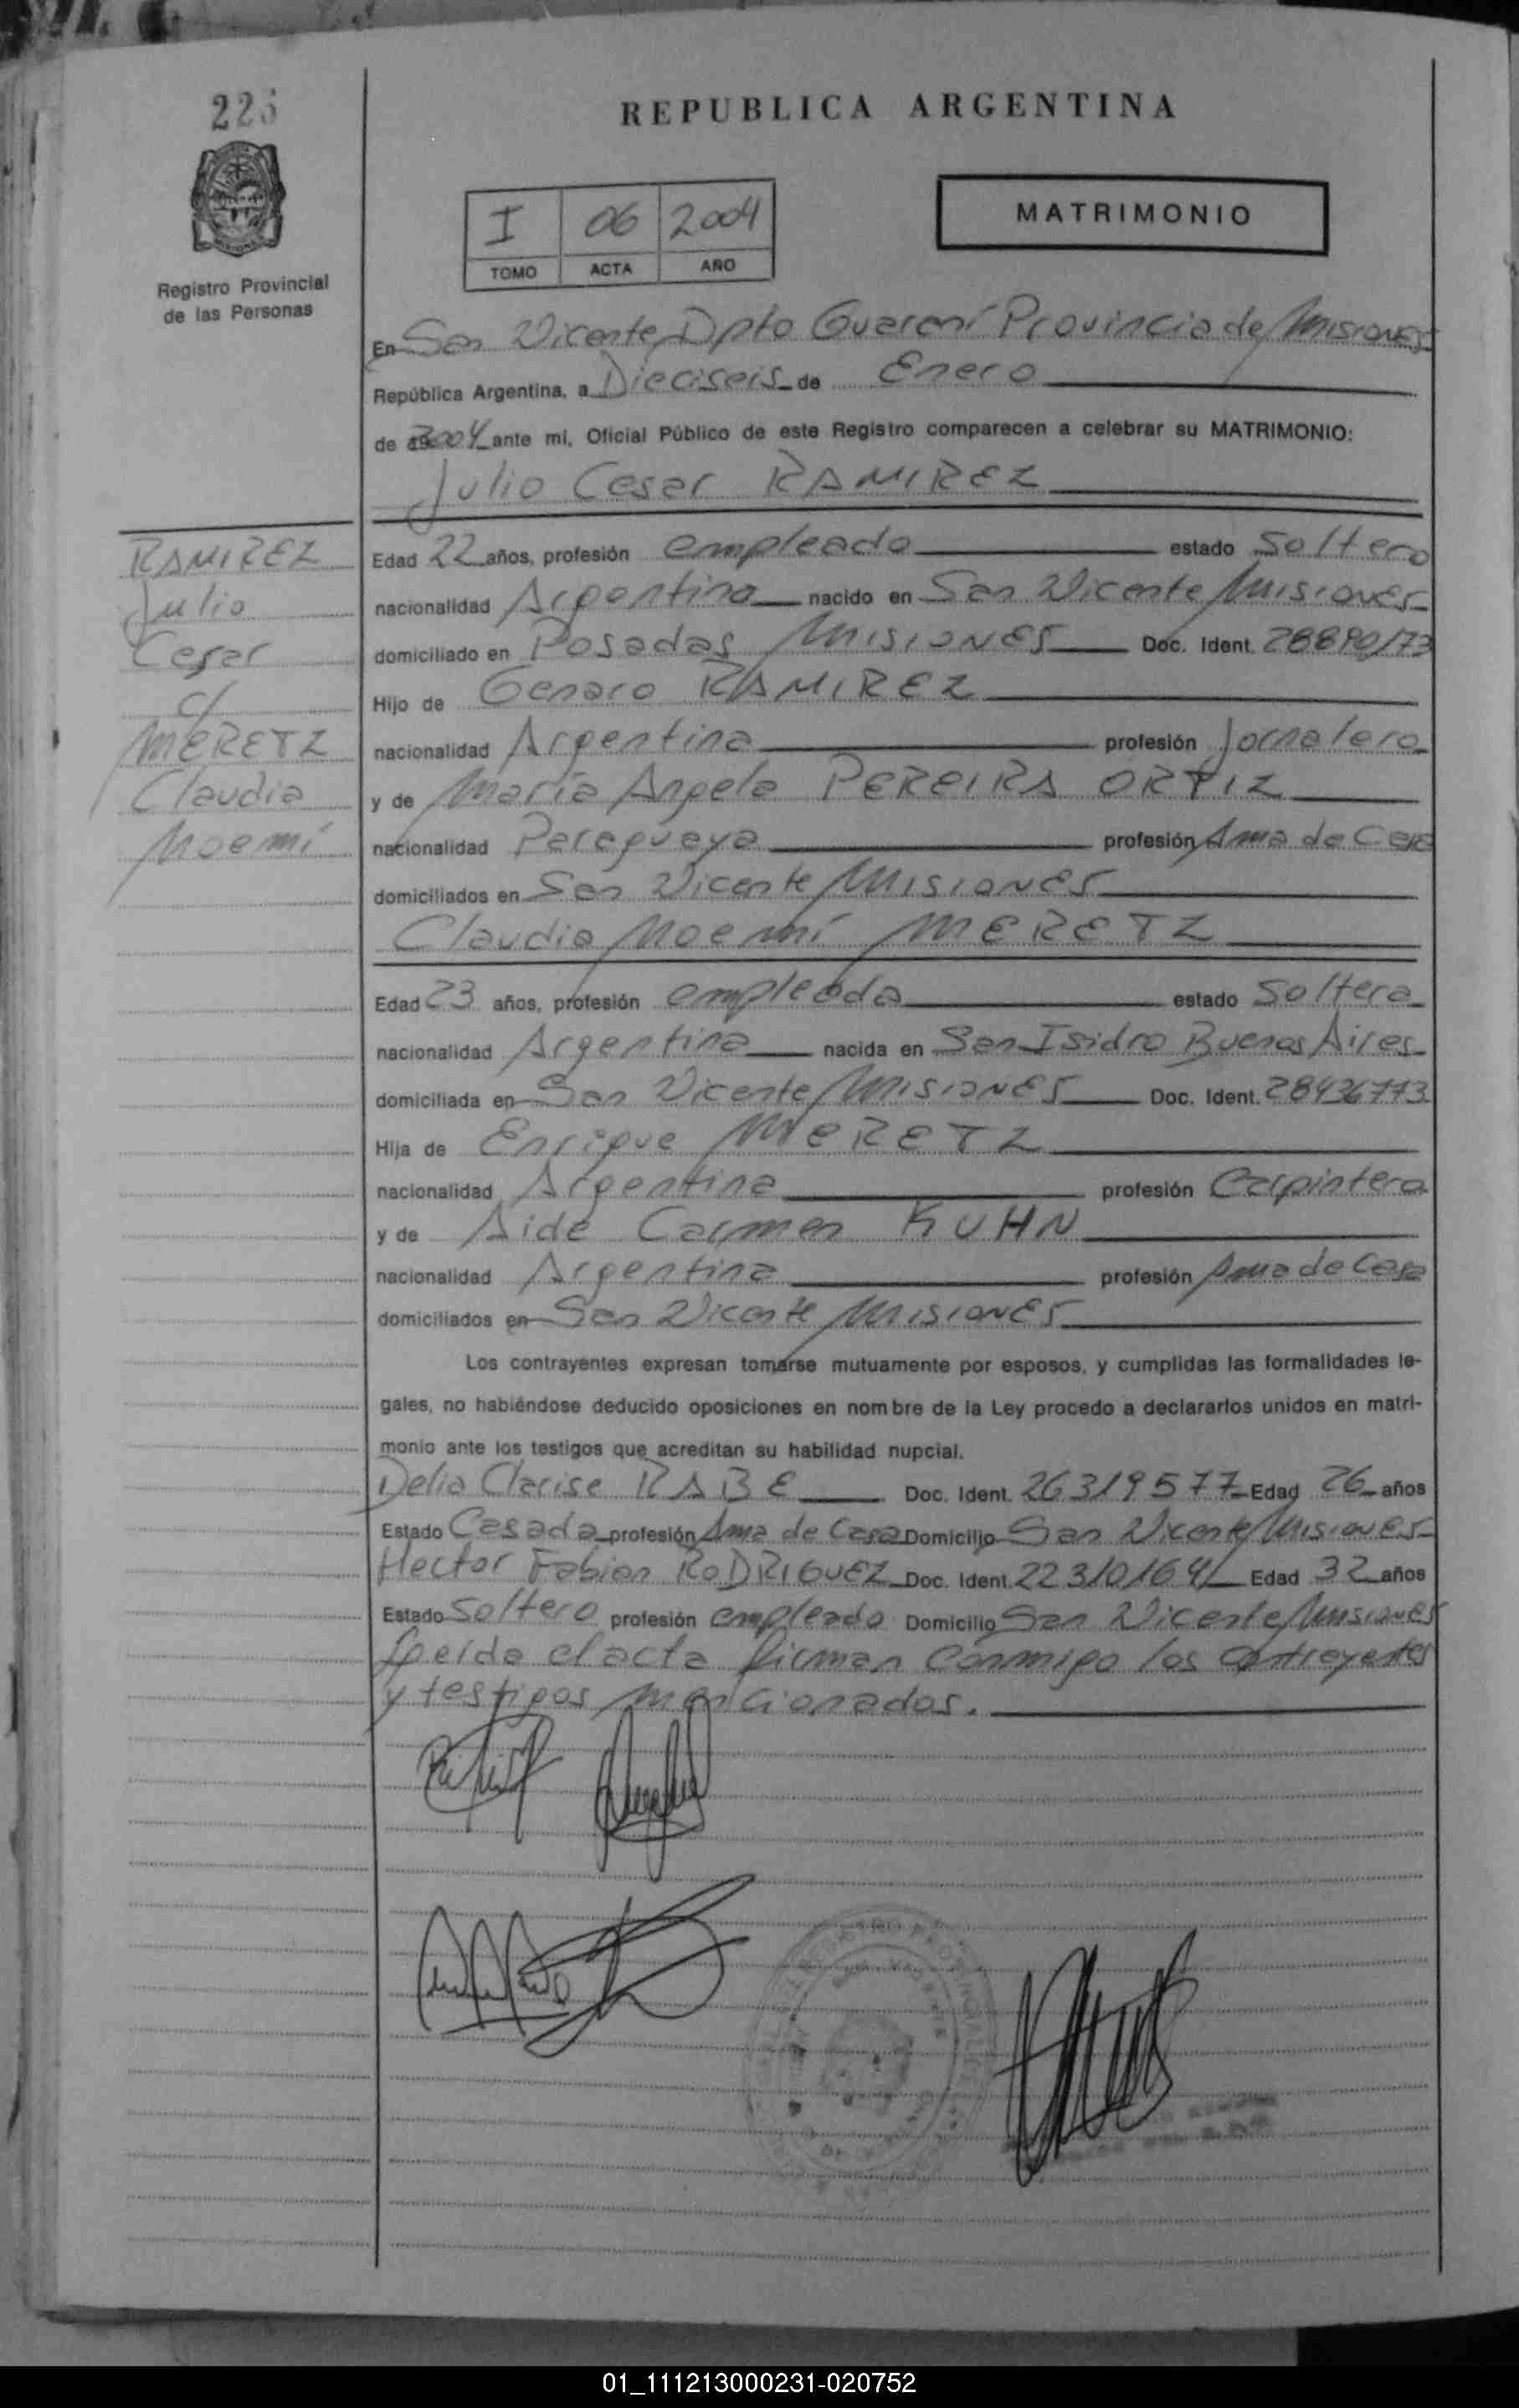 REPUBLICA ARGENTINA
MATRIMONIO
I 06 2004
TOMO ACTA AÑO
Registro Provincial
de las Personas
En San Vicente Dpto Guaraní Provincia de Misiones
República Argentina, a Dieciseis de Enero
de 2004 ante mi, Oficial Público de este Registro comparecen a celebrar su MATRIMONIO:
Julio Cesar RAMIREZ
RAMIREZ
Julio
Cesar
c/
MERETZ
Claudia
Noemí
Edad 22 años, profesión empleado estado Soltero
nacionalidad Argentina nacido en San Vicente Misiones
domiciliado en Posadas Misiones Doc. Ident.
Hijo de Genaro RAMIREZ
nacionalidad Argentina profesión Jornalero
y de María Angela PEREIRA ORTIZ
nacionalidad Paraguaya profesión Ama de Casa
domiciliados en San Vicente Misiones
Claudia Noemí MERETZ
Edad 23 años, profesión empleada estado Soltera
nacionalidad Argentina nacida en San Isidro Buenos Aires
domiciliada en San Vicente Misiones Doc. Ident. 28436773
Hija de Enrique MERETZ
nacionalidad Argentina profesión Carpintero
y de Aide Carmen KUHN
nacionalidad Argentina profesión Ama de Casa
domiciliados en San Vicente Misiones
Los contrayentes expresan tomarse mutuamente por esposos, y cumplidas las formalidades le-
gales, no habiéndose deducido oposiciones en nombre de la Ley procedo a declararlos unidos en matri-
monio ante los testigos que acreditan su habilidad nupcial.
Delia Clarise RABE Doc. Ident. 26319577 Edad 26 años
Estado Casada profesión Ama de Casa Domicilio San Vicente Misiones
Hector Fabian RODRIGUEZ Doc. Ident. 22310164 Edad 32 años
Estado Soltero profesión empleado Domicilio San Vicente Misiones
Leida el acta firman conmigo los contrayentes
y testigos mencionados.
01_111213000231-020752